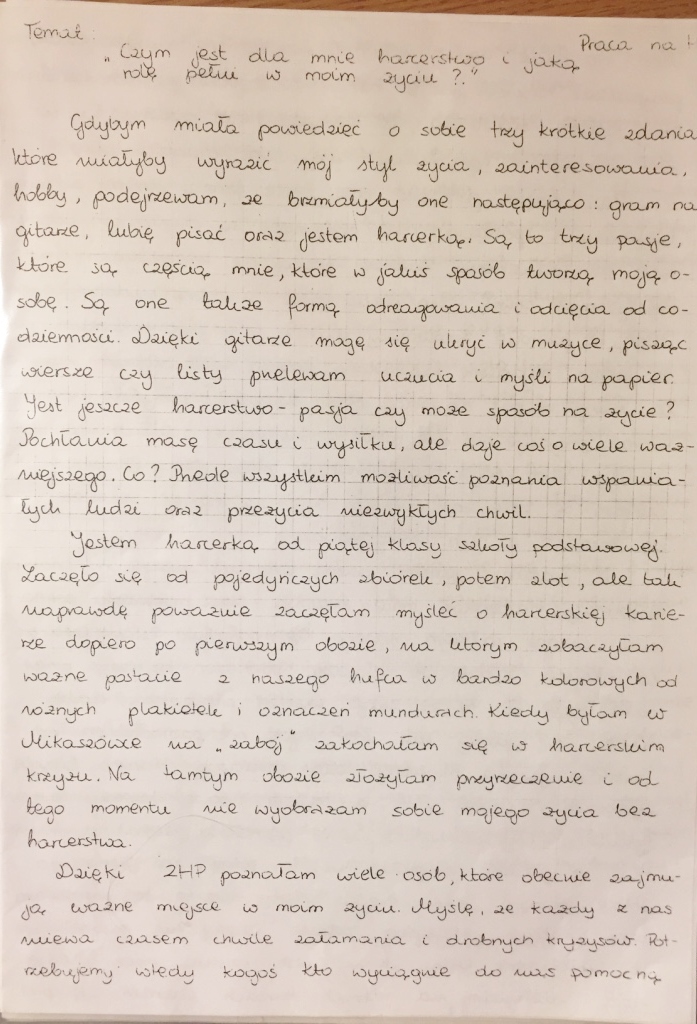 Temat:
Praca na
"Czym jest dla mnie harcerstwo i jaką
rolę pełni w moim życiu?."
Gdybym miała powiedzieć o sobie trzy krótkie zdania
które miałyby wyrazić mój styl życia, zainteresowania,
hobby, podejrzewam, że brzmiałyby one następująco: gram na
gitarze, lubię pisać oraz jestem harcerką. Są to trzy pasje,
które są częścią mnie, które w jakiś sposób tworzą moją o-
sobę. Są one także formą odreagowania i odcięcia od co-
dzienności. Dzięki gitarze mogę się ukryć w muzyce, pisząc
wiersze czy listy przelewam uczucia i myśli na papier.
Jest jeszcze harcerstwo - pasja czy może sposób na życie?
Pochłania masę czasu i wysiłku, ale daje coś o wiele waż-
niejszego. Co? Przede wszystkim możliwość poznania wspania-
łych ludzi oraz przeżycia niezwykłych chwil.
Jestem harcerką od piątej klasy szkoły podstawowej.
Zaczęło się od pojedyńczych zbiórek, potem zlot, ale tak
naprawdę poważnie zaczęłam myśleć o harcerskiej karie-
rze dopiero po pierwszym obozie, na którym zobaczyłam
ważne postacie z naszego hufca w bardzo kolorowych od
różnych plakietek i oznaczeń mundurach. Kiedy byłam w
Mikaszówce na "zabój" zakochałam się w harcerskim
krzyżu. Na tamtym obozie złożyłam przyrzeczenie i od
tego momentu nie wyobrażam sobie mojego życia bez
harcerstwa.
Dzięki ZHP poznałam wiele osób, które obecnie zajmu-
ją ważne miejsce w moim życiu. Myślę, że każdy z nas
miewa czasem chwile załamania i drobnych kryzysów. Pot-
rzebujemy wtedy kogoś kto wyciągnie do nas pomocną